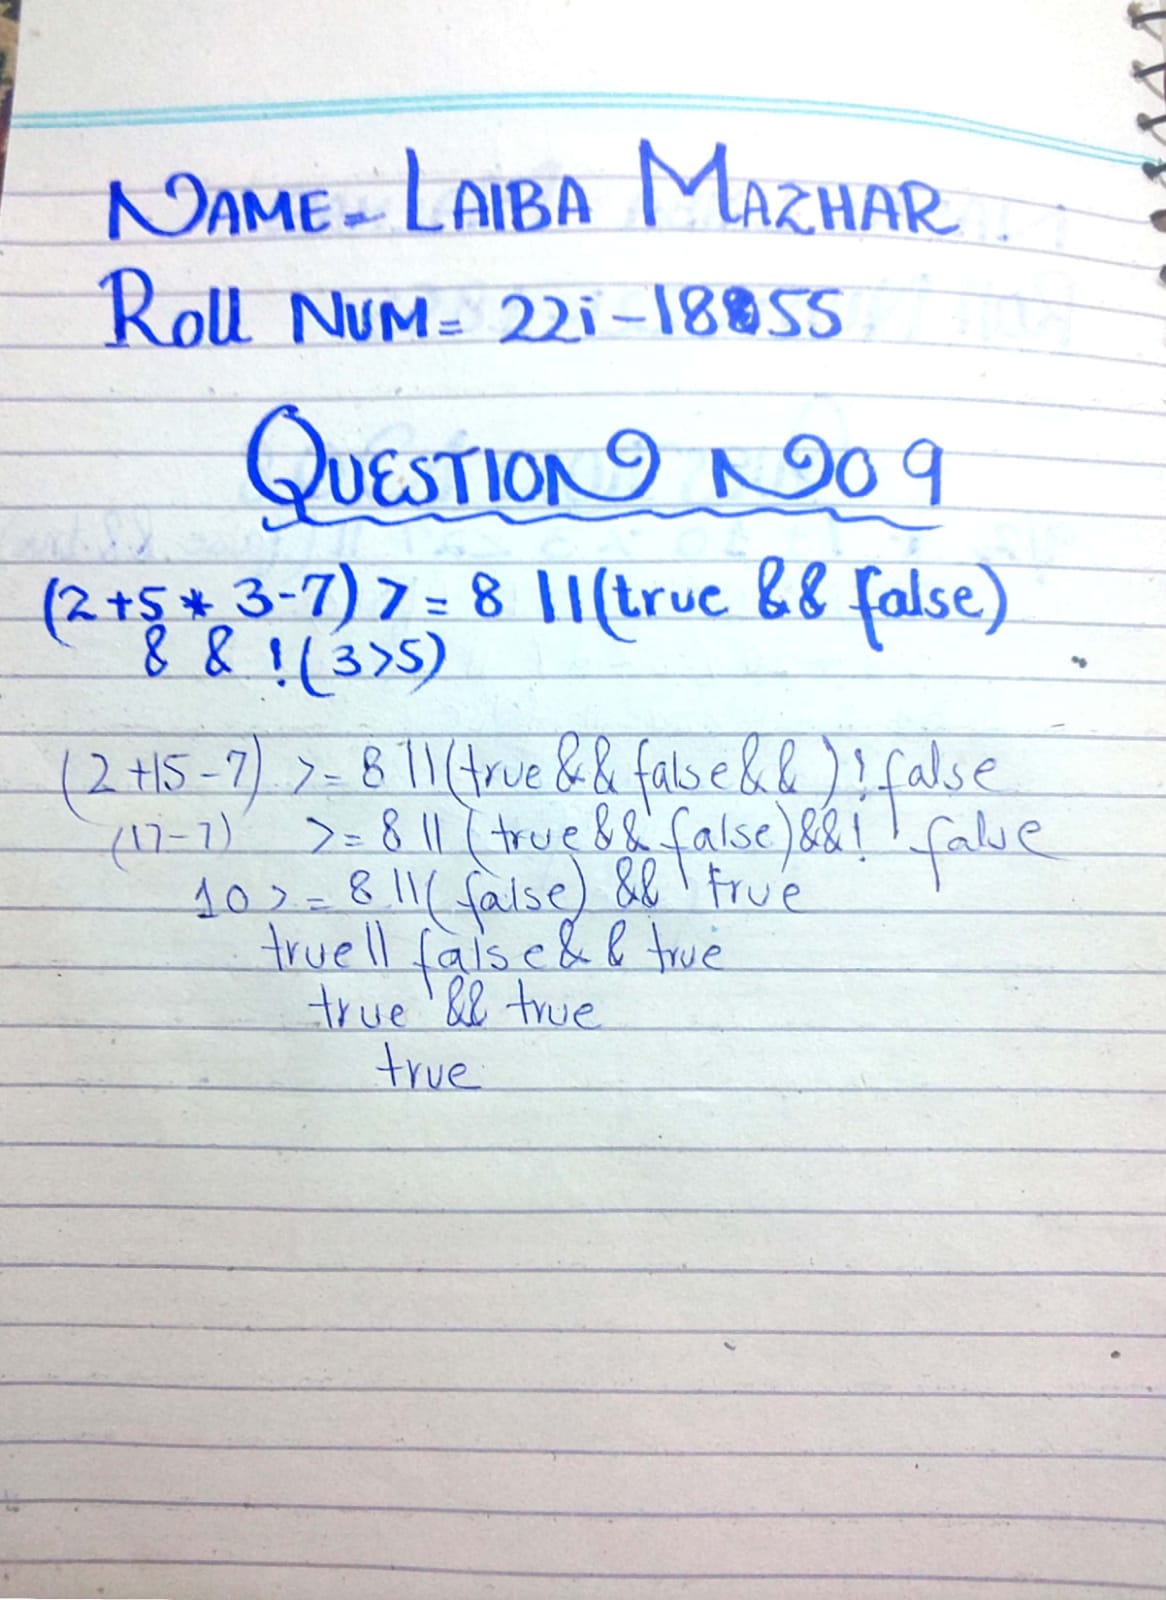 NAME= LAIBA MAZHAR
Roll NUM= 22i-18855
QUESTION NO 9
(2+5* 3-7) >= 8 ||(true && false)
& & !(3>5)
(2+15-7) >= 8 ||(true && false && ) ! false
(17-7) >= 8 || (true && false) && ! false
10 >= 8 ||(false) && true
true || false && true
true && true
true